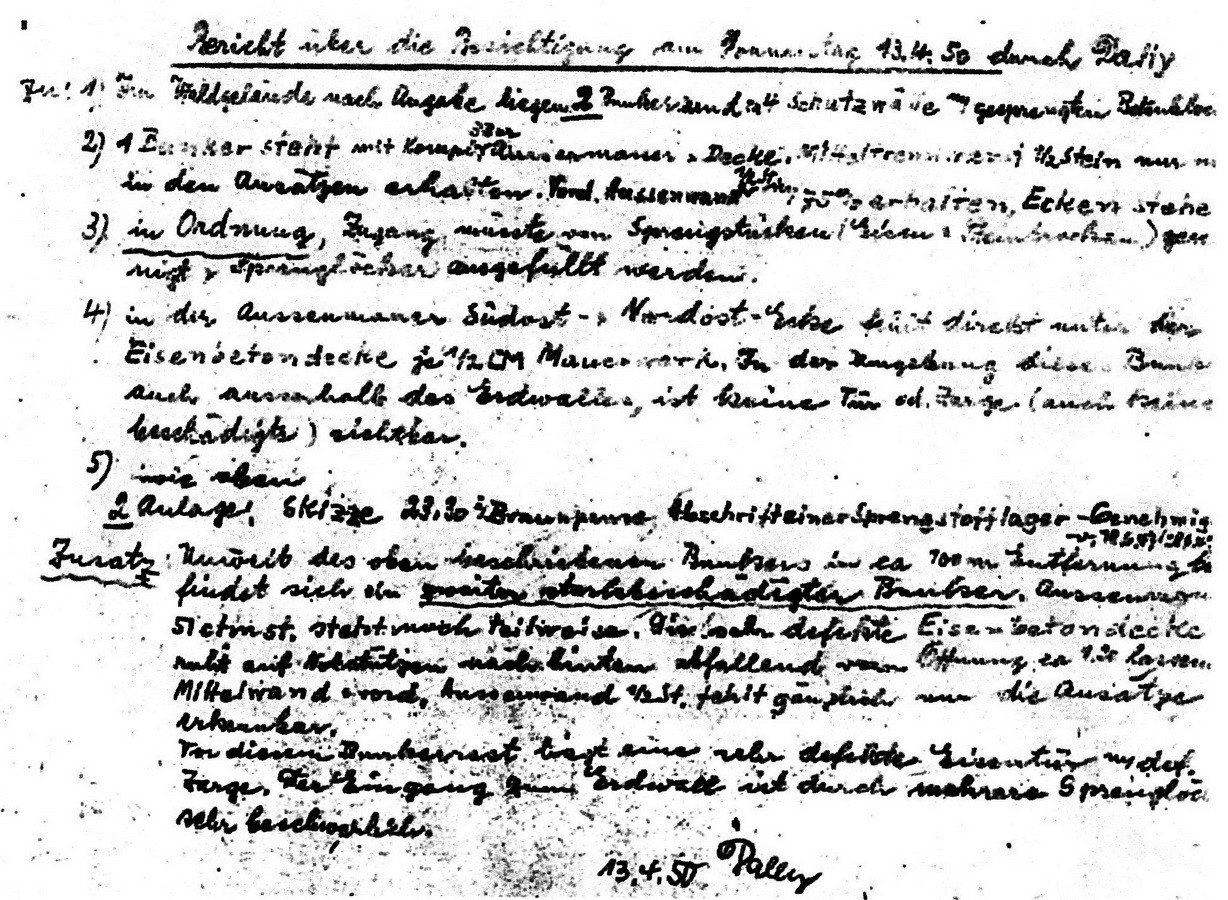 Bericht über die Besichtigung am Donnerstag 13.4.50 durch Pally
Zu: 1) Im Waldgelände nach Angabe liegen 2 Bunker und 4 Schutzwälle gesprengten
2) 1 Bunker steht mit Aussenmauer u. Decke. 1/2 Stein nur
in den Ansätzen erhalten. Vord. Aussenwand 1/2 Stein erhalten, Ecken stehe
3) in Ordnung, Zugang müsste von Sprengstücken (Eisen u. ) gerei
nigt u. Sprenglöcher ausgefüllt werden.
4) in der Aussenmauer Südost- u. Nordost-Ecke fehlt direkt unter der
Eisenbetondecke je 1/2 Mauerwerk. In der Umgebung dieses Bunk
auch ausserhalb des Erdwalles, ist keine Tür od. Zarge (auch keine
beschädigte) sichtbar.
5) wie oben
2 Anlage: Skizze Abschrift einer Sprengstofflager-Genehmig
Zusatz: Unweit des oben beschriebenen Bunkers in ca 100 m Entfernung be
findet sich ein zweiter starkbeschädigter Bunker. Aussenmau
steht noch teilweise. Die sehr defekte Eisenbetondecke
ruht auf nach hinten abfallend vorn Öffnung ca lassen
Mittelwand u. vord. Aussenwand 1/2 St. fehlt gänzlich nur die Ansätze
erkennbar.
Vor diesem Bunkerrest liegt eine sehr defekte Eisentür def.
Zarge. Der Eingang zum Erdwall ist durch mehrere Sprenglöc
sehr beschwerlich.
13.4.50 Pally